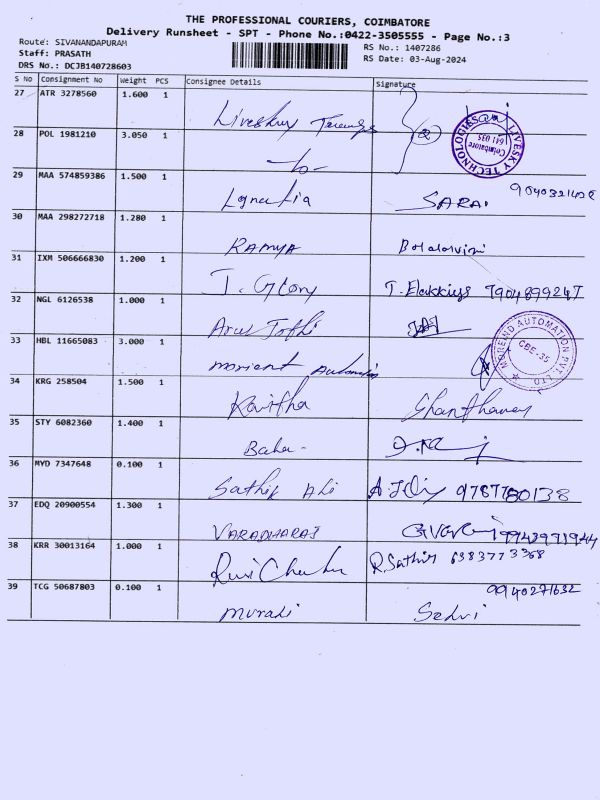 THE PROFESSIONAL COURIERS, COIMBATORE
Delivery Runsheet - SPT - Phone No.:0422-3505555 - Page No.:3
Route: SIVANANDAPURAM
RS No.: 1407286
Staff: PRASATH
RS Date: 03-Aug-2024
DRS No.: DCJB140728603
S No Consignment No Weight PCS Consignee Details Signature
27 ATR 3278560 1.600 1
28 POL 1981210 3.050 1 2
LIVESKY TECHNOLOGIES Coimbatore 641 035
29 MAA 574859386 1.500 1 SARAI
30 MAA 298272718 1.280 1 RAMYA
31 IXM 506666830 1.200 1 I. Glory T. Elakkiya 7904899247
32 NGL 6126538 1.000 1 Arus Jothi
33 HBL 11665083 3.000 1
MOREIND AUTOMATION PVT. LTD CBE-35
34 KRG 258504 1.500 1 Kavitha
35 STY 6082360 1.400 1 Baha
36 MYD 7347648 0.100 1 Sathik Ali 9787780138
37 EDQ 20900554 1.300 1 VARADHARAJ
38 KRR 30013164 1.000 1 R. Sathis 6383773368
39 TCG 50687803 0.100 1 Murali Selvi 9940271632